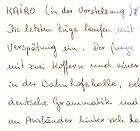 KAIRO (in der Vorstellung)
Die letzten Züge laufen mit
Verspätung ein. Der junge
mit zwei Koffern und einer
in der Bahnhofshalle, sch
deutsche Grammatik und
an Ausländer hinter sich he